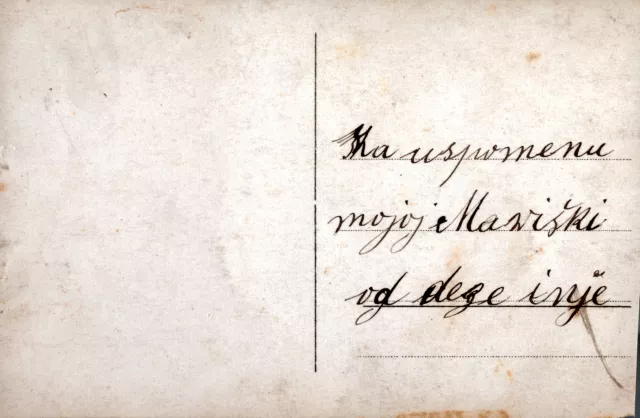 Na uspomenu
mojoj Mariški
od dege i nje